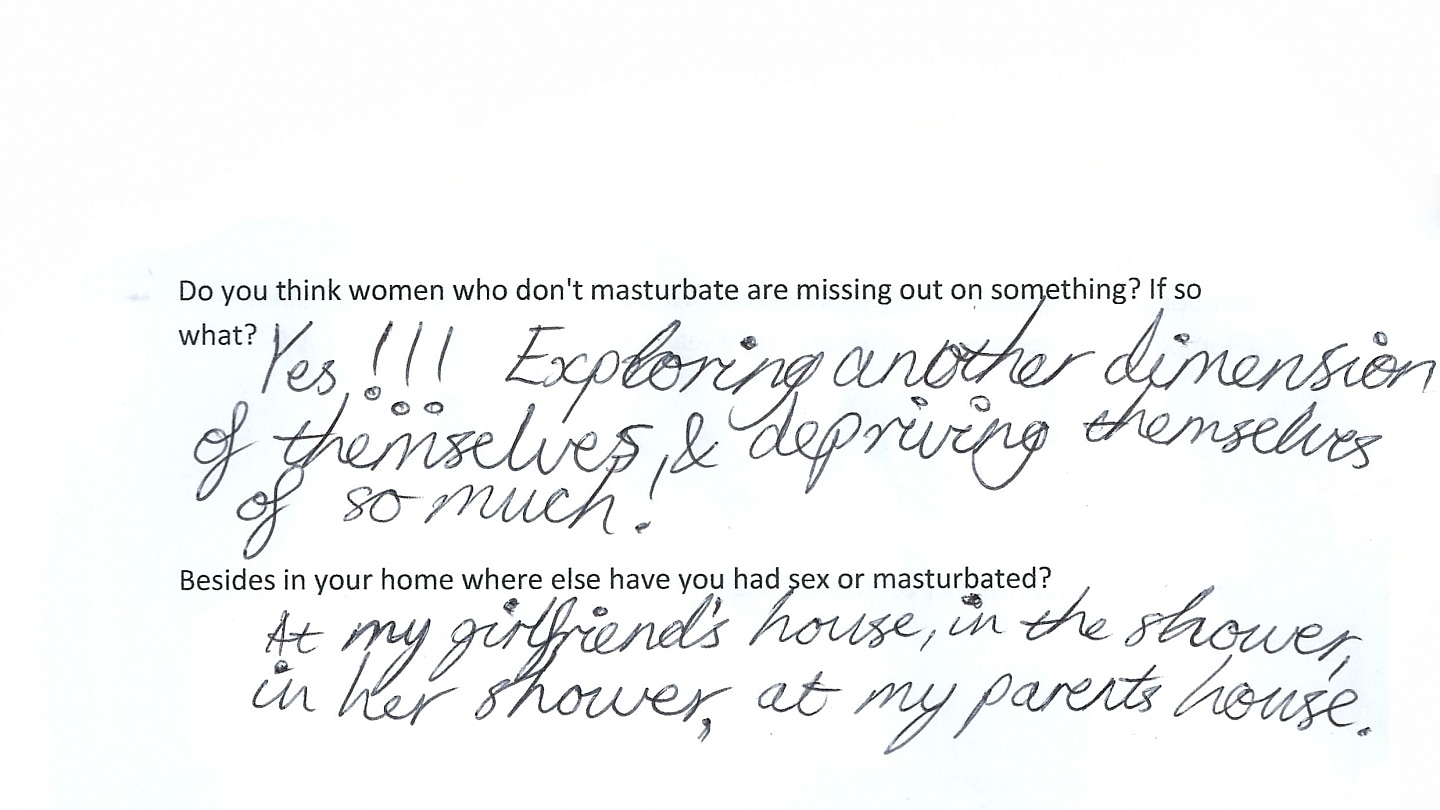 Do you think women who don't masturbate are missing out on something? If so
what? Yes, !!! Exploring another dimension
of themselves, & depriving themselves
of so much!
Besides in your home where else have you had sex or masturbated?
At my girlfriend's house, in the shower,
in her shower, at my parents house.